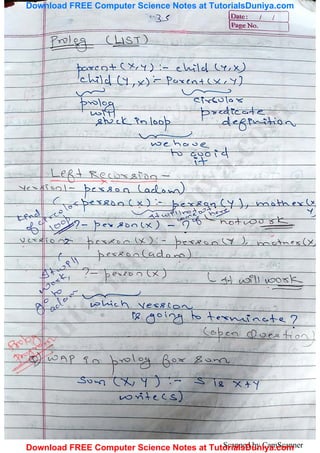 Download FREE Computer Science Notes at TutorialsDuniya.com
35
Date: / /
Page No.
Prolog (LIST)
parent (X,Y) :- child (Y,X)
child (Y,X) :- Parent(X,Y)
prolog
will
stuck in loop
circular
predicate
definition
we have
to avoid
it
Left Recursion -
version 1 - person (adom)
person (x) :- person (Y), mother(x
Y
kind
of
loop
?- person (x) - ?
not work
version 2 person (x) :- person (Y), mother(x
person (adom)
it will
work,
go to
adom
?- person (x)
it will work
which version
is going to terminate?
(open Question)
Prolog
WAP in prolog for sum
Sum (X,Y) :- S is X+Y
write(s)
Scanned by CamScanner
Download FREE Computer Science Notes at TutorialsDuniya.com